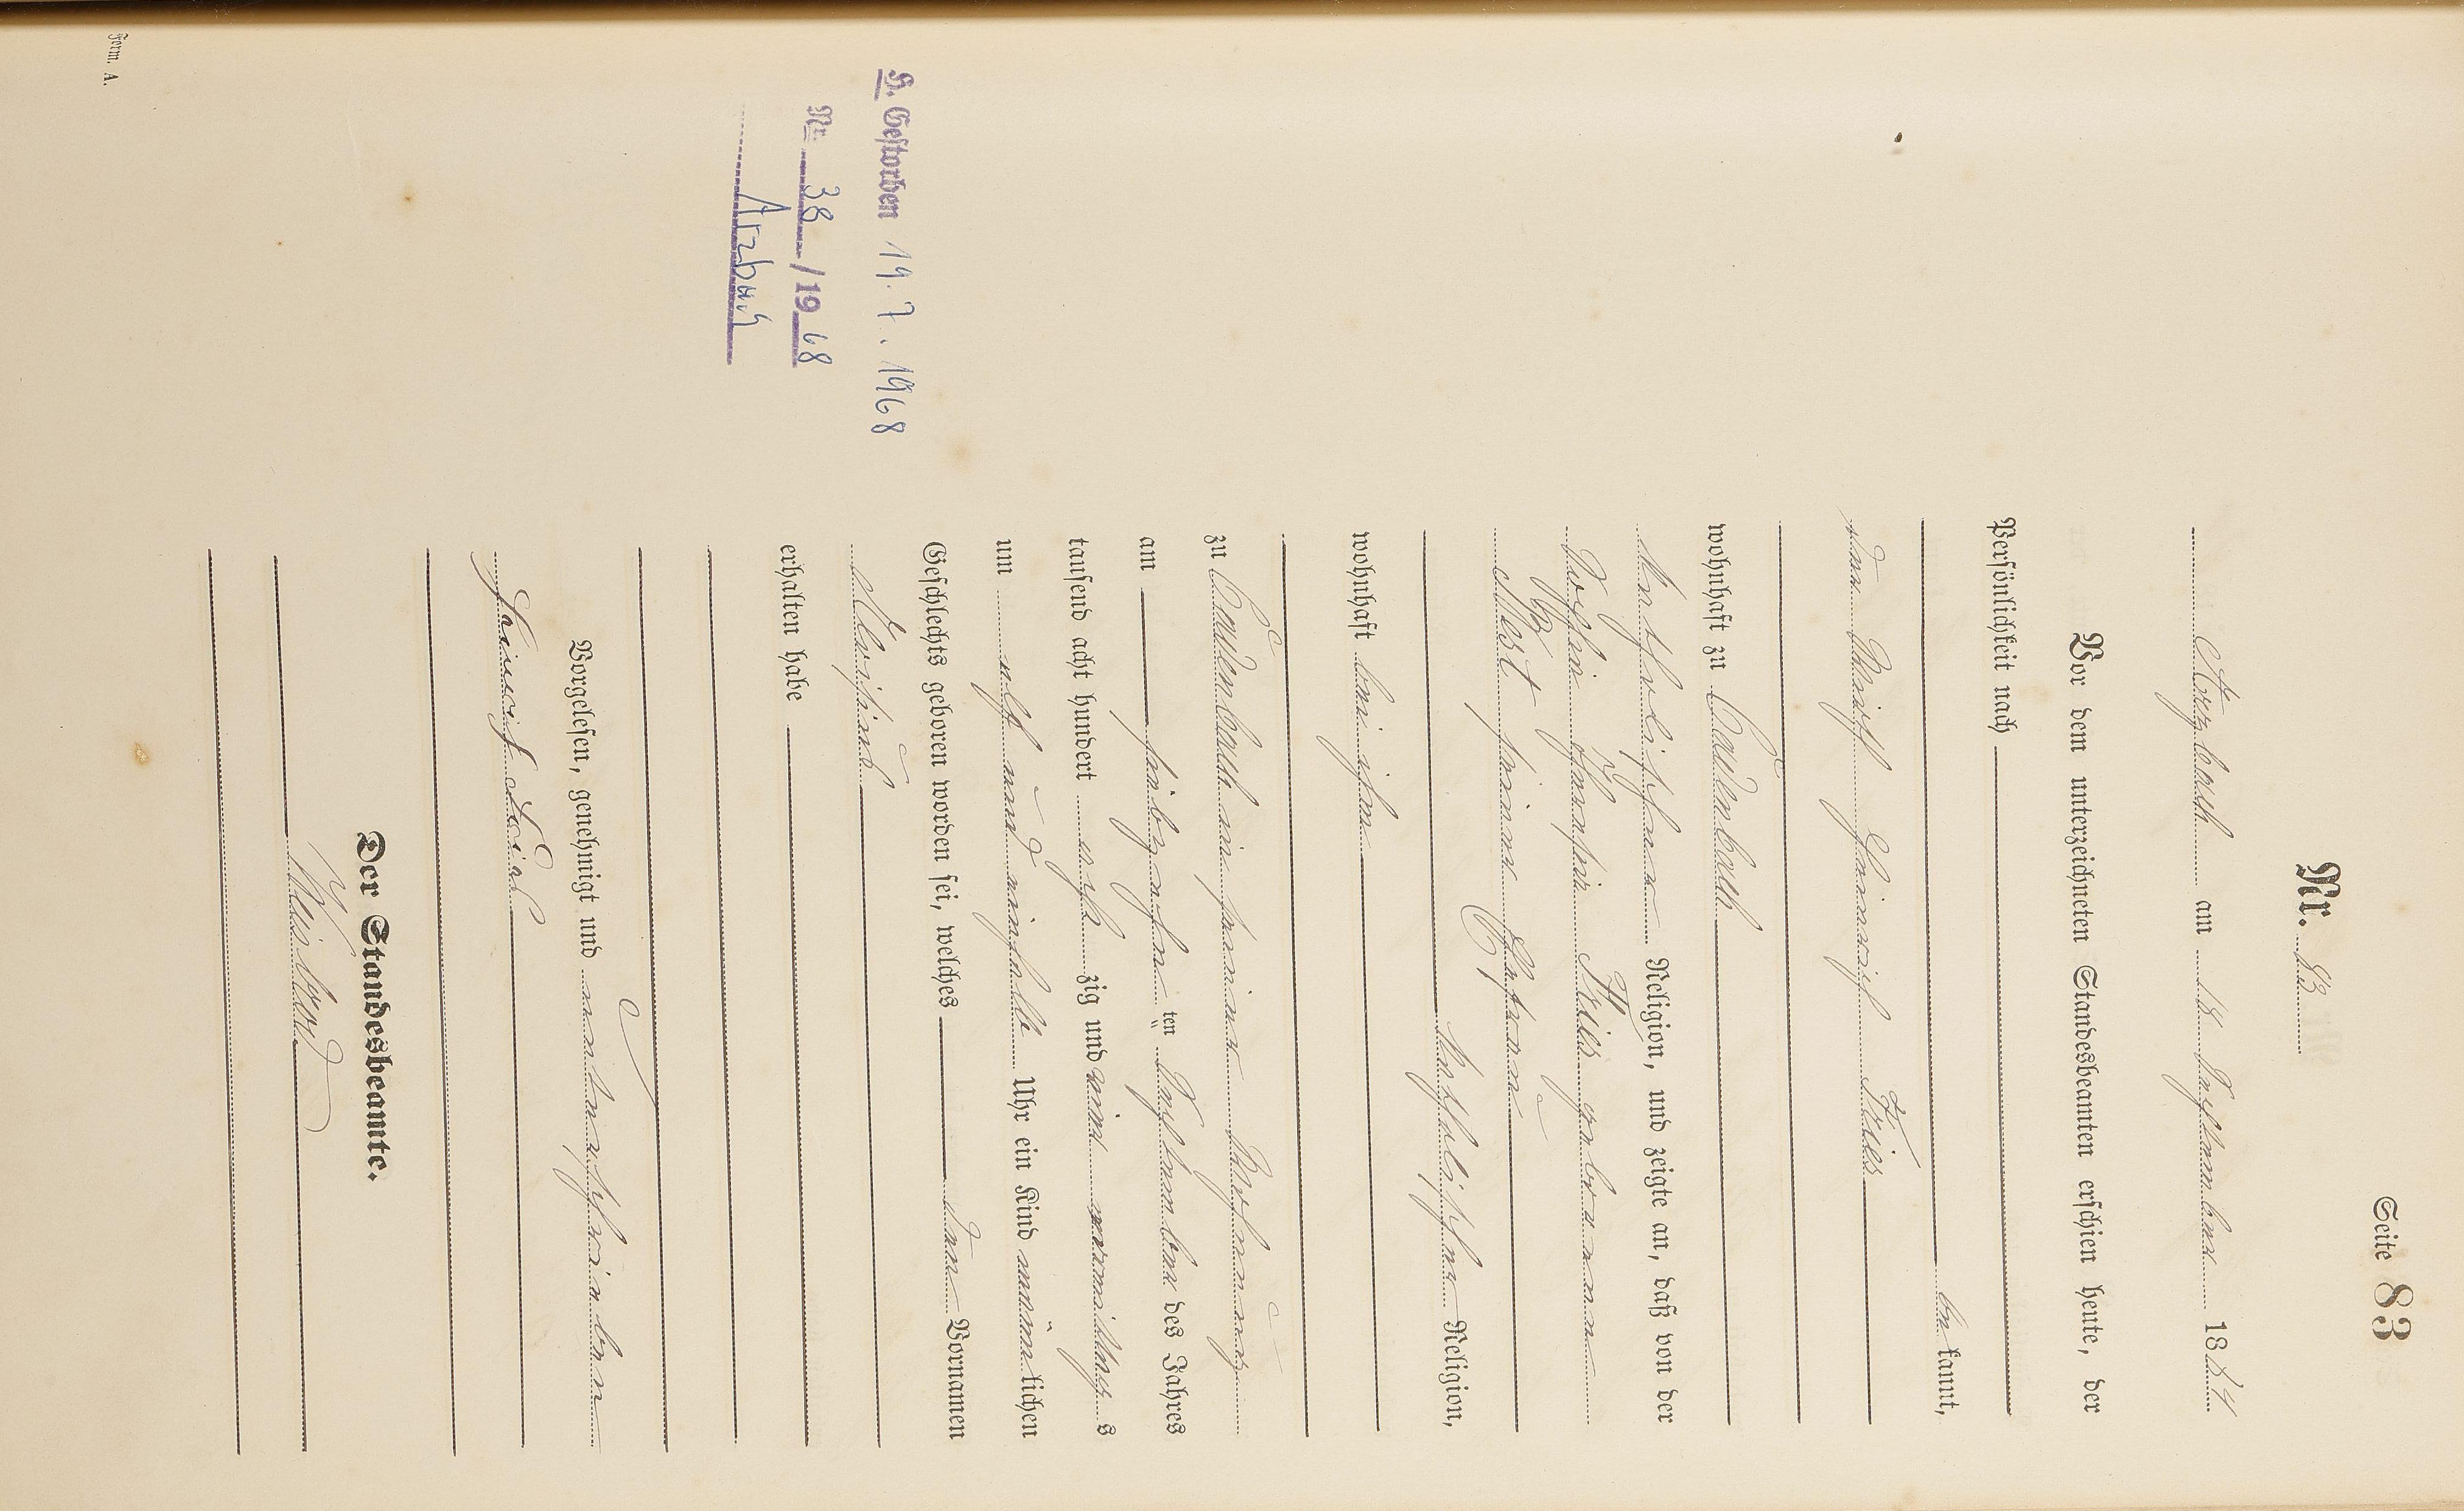 Seite 83
Nr. 83
Arzbach am 18 September 1884
Vor dem unterzeichneten Standesbeamten erschien heute, der
Persönlichkeit nach
be kannt,
der Heinrich Fries
wohnhaft zu Cadenbach
katholischer Religion, und zeigte an, daß von der
Fries geborenen
Best seiner Ehefrau
katholischer Religion,
wohnhaft bei ihm
zu Cadenbach in seiner Wohnung
am siebzehn ten September des Jahres
tausend acht hundert acht zig und vier vormittag s
um elf und einhalb Uhr ein Kind männ lichen
Geschlechts geboren worden sei, welches den Vornamen
erhalten habe
Vorgelesen, genehmigt und unterschrieben
Heinrich
Der Standesbeamte.
Weisbrod
H. Gestorben 19. 7. 1968
Nr. 38 /1968
Arzbach
Form. A.